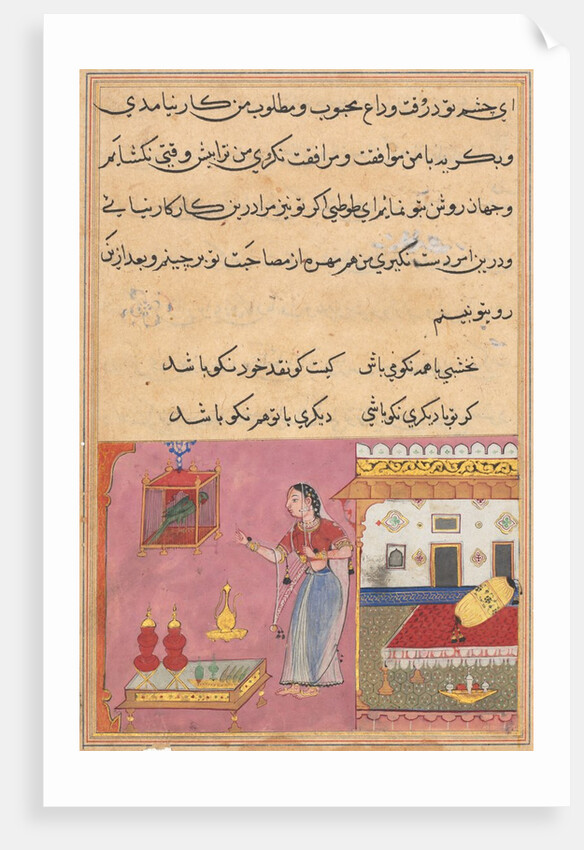 ای چشم تو در وقت وداع محبوب و مطلوب من کار نیامدی
و بکریه با من موافقت و مرافقت نکردی من ترا بیش وقتی نکشایم
و جهان روشن بتو نمایم ای طوطی اکر تو نیز مرا درین کار کار نیائی
و درین امر دست نکیری من هم مهره از مصاحبت تو برچینم و بعد ازین
رو بتو نبینم
نخشبی با همه نکو می باش کیست کو نقد خود نکو باشد
کر تو با دیکری نکو باشی دیکری با تو هم نکو باشد